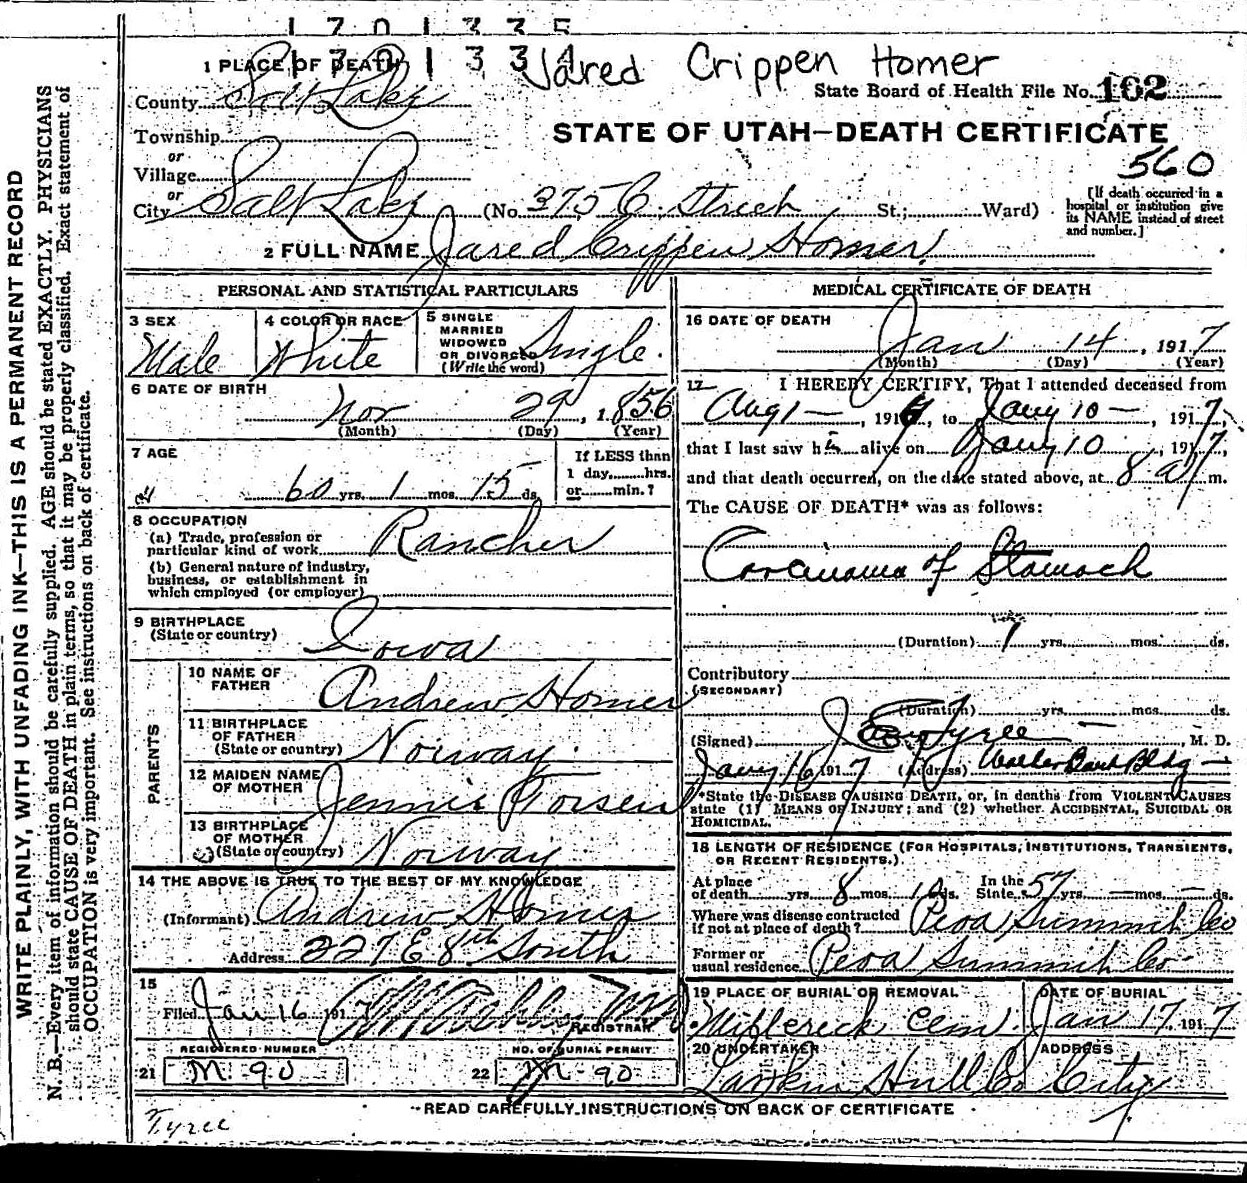 1701335
1701334 Jared Crippen Homer
1 PLACE OF DEATH
County Salt Lake
State Board of Health File No. 162
Township
or
STATE OF UTAH—DEATH CERTIFICATE
560
Village
or
City Salt Lake (No. 375 C. Street St.; Ward)
[If death occurred in a
hospital or institution give
its NAME instead of street
and number.]
2 FULL NAME Jared Crippen Homer.
PERSONAL AND STATISTICAL PARTICULARS
3 SEX
Male
4 COLOR OR RACE
White
5 SINGLE
MARRIED
WIDOWED
OR DIVORCED
(Write the word)
Single.
6 DATE OF BIRTH
Nov 29, 1856
(Month) (Day) (Year)
7 AGE
60 yrs. 1 mos. 15 ds.
If LESS than
1 day, hrs.
or min.?
8 OCCUPATION
(a) Trade, profession or
particular kind of work Rancher
(b) General nature of industry,
business, or establishment in
which employed (or employer)
9 BIRTHPLACE
(State or country)
Iowa
PARENTS
10 NAME OF
FATHER
Andrew Homer
11 BIRTHPLACE
OF FATHER
(State or country)
Norway.
12 MAIDEN NAME
OF MOTHER
Jennie Torsen
13 BIRTHPLACE
OF MOTHER
(State or country)
Norway
14 THE ABOVE IS TRUE TO THE BEST OF MY KNOWLEDGE
(Informant) Andrew Homer
Address 227 E 8th South
15
Filed Jan 16 191 7
REGISTRAR
REGISTERED NUMBER
21 M-90
NO. OF BURIAL PERMIT
22 M-90
MEDICAL CERTIFICATE OF DEATH
16 DATE OF DEATH
Jan 14, 1917
(Month) (Day) (Year)
17 I HEREBY CERTIFY, That I attended deceased from
Aug 1—, 1916, to Jany 10—, 1917,
that I last saw him alive on Jany 10, 1917,
and that death occurred, on the date stated above, at 8 a m.
The CAUSE OF DEATH* was as follows:
Carcinoma of Stomach
(Duration) 1 yrs. mos. ds.
Contributory
(SECONDARY)
(Duration) yrs. mos. ds.
(Signed) Tyree, M. D.
Jany 16 1917 (Address) Walker Bank Bldg—
*State the DISEASE CAUSING DEATH, or, in deaths from VIOLENT CAUSES
state (1) MEANS OF INJURY; and (2) whether ACCIDENTAL, SUICIDAL OR
HOMICIDAL.
18 LENGTH OF RESIDENCE (FOR HOSPITALS, INSTITUTIONS, TRANSIENTS,
OR RECENT RESIDENTS.)
At place
of death yrs. 8 mos. 10 ds. In the
State 57 yrs. — mos. — ds.
Where was disease contracted
if not at place of death? Peoa Summit Co
Former or
usual residence Peoa Summit Co-
19 PLACE OF BURIAL OR REMOVAL
Cem.
DATE OF BURIAL
Jan 17, 1917
20 UNDERTAKER
Larkin Hull Co
ADDRESS
City
READ CAREFULLY INSTRUCTIONS ON BACK OF CERTIFICATE
Tyree
WRITE PLAINLY, WITH UNFADING INK—THIS IS A PERMANENT RECORD
N. B.—Every item of information should be carefully supplied. AGE should be stated EXACTLY. PHYSICIANS
should state CAUSE OF DEATH in plain terms, so that it may be properly classified. Exact statement of
OCCUPATION is very important. See instructions on back of certificate.